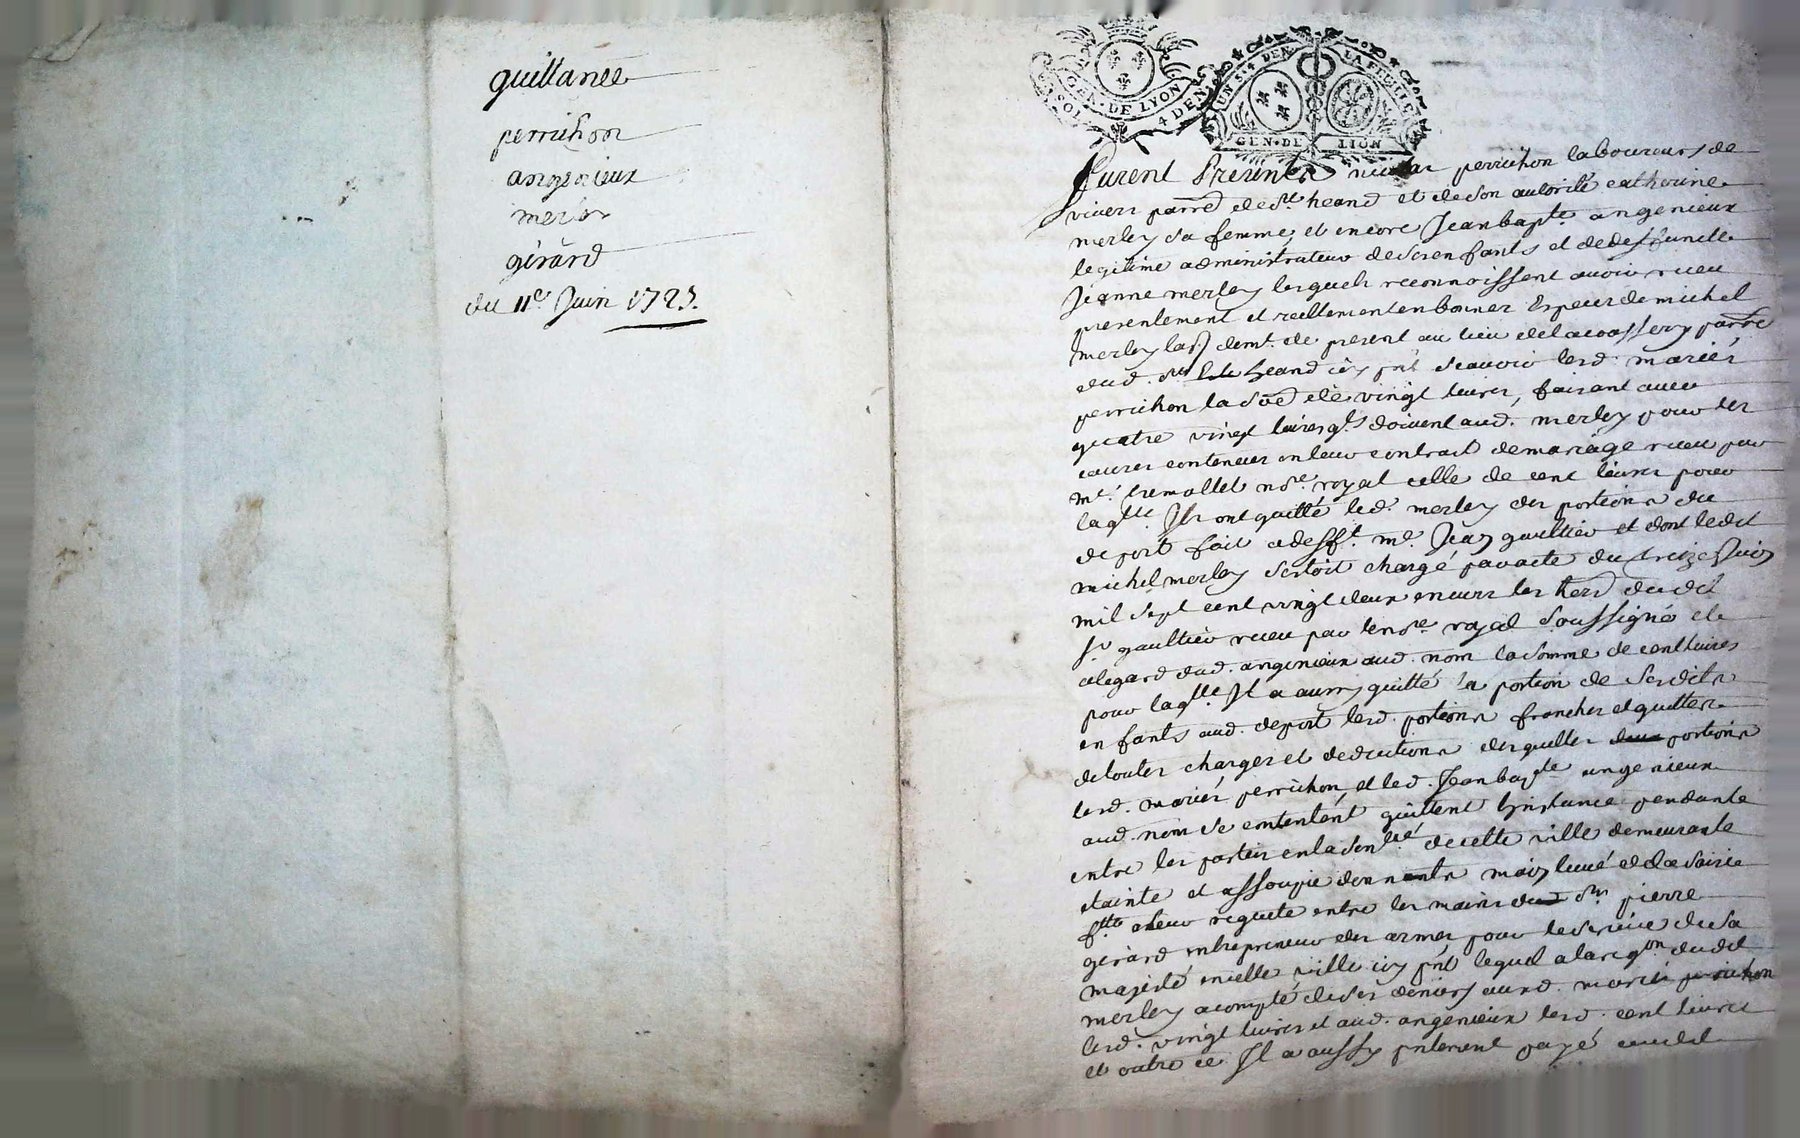 quittance
perrichon
angenieux
merley
gerard
du 11e Juin 1725.
GEN. DE LYON
SOL 4 DEN
UN S. 4 DEN. LA FEUILLE
GEN. DE LION
furent Presents perrichon laboureurs de
viveri parre de st. heand et de son autorité catherine
merley sa femme, et encore Jean bapte. angenieux
legitime administrateur de ses enfants et de deffuncte
Jeanne merley lesquels reconnoissent avoir receu
presentement et reellement en bonnes Especes de michel
merley demt. de present au lieu de parre
dud. st. heand icy pnt scauoir lesd. mariés
perrichon la de vingt liures, faisant auec
quatre vingt liures doivent aud. merley pour les
causes contenues en leur contrart de mariage receu par
me. tremollet nore. royal celle de cent liures pour
laqlle. Ils ont quitté led. merley des portions du
deport fait a defft. me. Jean gaultier et dont ledit
michel merley sestoit chargé par acte du treize Juin
mil sept cent vingt deux enuers les herd dudit
sr gaultier receu par le nore royal soussigné et a
alegard dud. angenieux aud. nom la somme de cent liures
pour laqlle. Il a aussy quitté la portion de sesdits
enfants aud. deport lesd. portions franches et quittes
de toutes charges et deductions desquelles portions
lesd. mariés perrichon, et led. Jean bapte angenieux
aud. nom se contentent quittent Linstance pendante
entre les parties en la de cette ville demeurante
etainte et assoupie donnants main leuée de la saisie
ftte a leur requete entre les mains du sr. pierre
gérard entrepreneur des armes pour le seruice de sa
majesté en cette ville icy pnt lequel a la reqon dudit
merley a compté de ses deniers aux d. mariés perrichon
lesd. vingt liures et aud. angenieux lesd. cent liures
et outre ce Il a aussy pntement payé